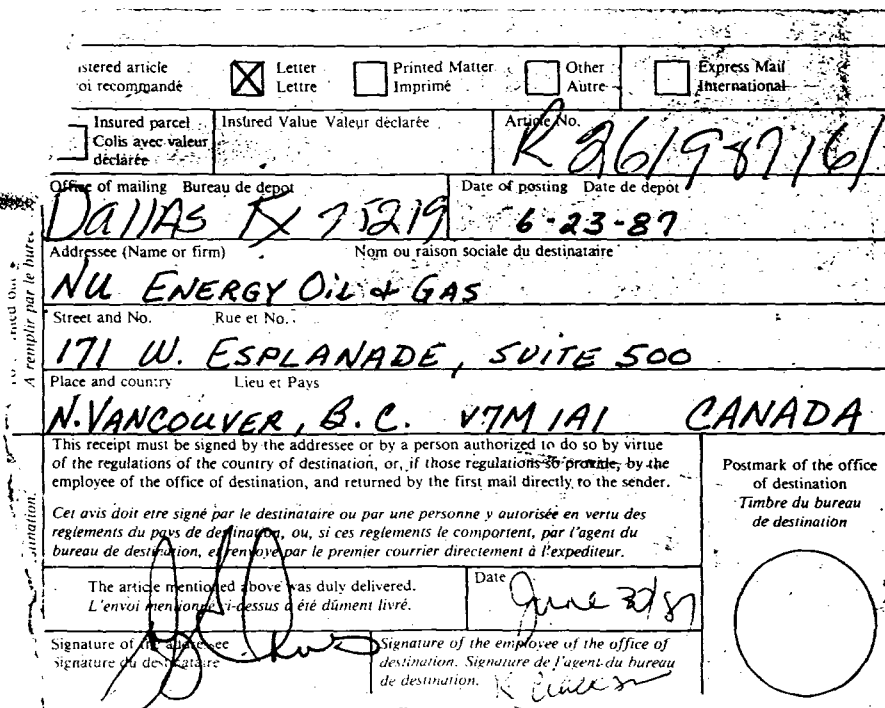 istered article Letter Printed Matter Other Express Mail
oi recommandé Lettre Imprimé Autre International
Insured parcel Insured Value Valeur déclarée Article No.
Colis avec valeur R 261987161
déclarée
Office of mailing Bureau de depot Date of posting Date de depot
DallAS TX 75219 6-23-87
Addressee (Name or firm) Nom ou raison sociale du destinataire
NU ENERGY OIL & GAS
Street and No. Rue et No.
171 W. ESPLANADE, SUITE 500
Place and country Lieu et Pays
N. VANCOUVER, B.C. V7M 1A1 CANADA
This receipt must be signed by the addressee or by a person authorized to do so by virtue
of the regulations of the country of destination, or, if those regulations so provide, by the
employee of the office of destination, and returned by the first mail directly to the sender.
Cet avis doit etre signé par le destinataire ou par une personne y autorisée en vertu des
reglements du pays de destination, ou, si ces reglements le comportent, par l'agent du
bureau de destination, et renvoye par le premier courrier directement à l'expediteur.
Postmark of the office
of destination
Timbre du bureau
de destination
The article mentioned above was duly delivered. Date
L'envoi mentionné ci-dessus a été dûment livré. June 30/87
Signature of the addressee Signature of the employee of the office of
Signature du destinataire destination. Signature de l'agent du bureau
de destination.
A remplir par le bure